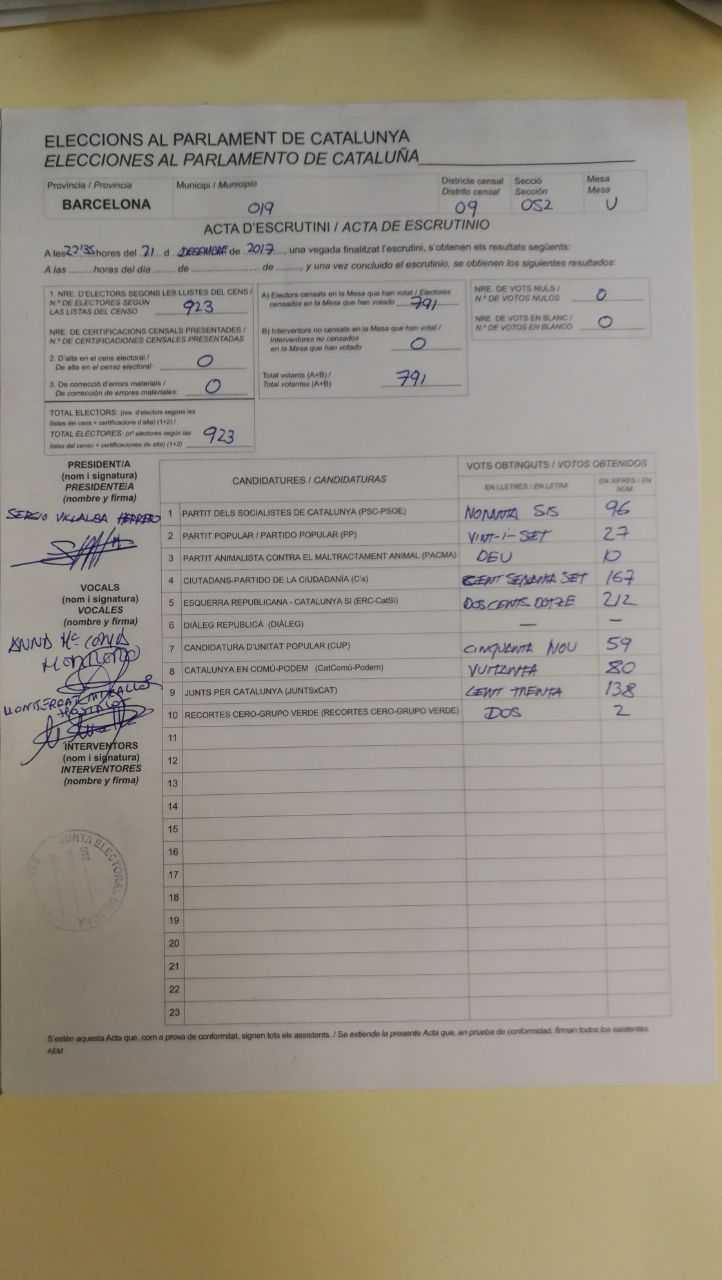 ELECCIONS AL PARLAMENT DE CATALUNYA
ELECCIONES AL PARLAMENTO DE CATALUÑA
Província / Provincia
BARCELONA
Municipi / Municipio
019
Districte censal
Distrito censal
09
Secció
Sección
052
Mesa
Mesa
U
ACTA D'ESCRUTINI / ACTA DE ESCRUTINIO
A les 22'35 hores del 21 d DESEMBRE de 2017, una vegada finalitzat l'escrutini, s'obtenen els resultats següents:
A las ........ horas del día ....... de ............................ de ........, y una vez concluido el escrutinio, se obtienen los siguientes resultados:
1. NRE. D'ELECTORS SEGONS LES LLISTES DEL CENS /
N.º DE ELECTORES SEGÚN
LAS LISTAS DEL CENSO 923
NRE. DE CERTIFICACIONS CENSALS PRESENTADES /
N.º DE CERTIFICACIONES CENSALES PRESENTADAS
2. D'alta en el cens electoral /
De alta en el censo electoral: 0
3. De correcció d'errors materials /
De corrección de errores materiales: 0
TOTAL ELECTORS: (nre. d'electors segons les
llistes del cens + certificacions d'alta) (1+2) /
TOTAL ELECTORES: (nº electores según las
listas del censo + certificaciones de alta) (1+2) 923
A) Electors censats en la Mesa que han votat / Electores
censados en la Mesa que han votado 791
B) Interventors no censats en la Mesa que han votat /
Interventores no censados
en la Mesa que han votado 0
Total votants (A+B) /
Total votantes (A+B) 791
NRE. DE VOTS NULS /
N.º DE VOTOS NULOS 0
NRE. DE VOTS EN BLANC /
N.º DE VOTOS EN BLANCO 0
PRESIDENT/A
(nom i signatura)
PRESIDENTE/A
(nombre y firma)
SERGIO VILLALBA HERRERO
VOCALS
(nom i signatura)
VOCALES
(nombre y firma)
ANNA Mª
MONTSERRAT
INTERVENTORS
(nom i signatura)
INTERVENTORES
(nombre y firma)
JUNTA ELECTORAL DE ZONA
CANDIDATURES / CANDIDATURAS
VOTS OBTINGUTS / VOTOS OBTENIDOS
EN LLETRES / EN LETRA
EN XIFRES / EN NÚM
1 PARTIT DELS SOCIALISTES DE CATALUNYA (PSC-PSOE) NORANTA SIS 96
2 PARTIT POPULAR / PARTIDO POPULAR (PP) VINT-I-SET 27
3 PARTIT ANIMALISTA CONTRA EL MALTRACTAMENT ANIMAL (PACMA) DEU 10
4 CIUTADANS-PARTIDO DE LA CIUDADANÍA (C's) CENT SEIXANTA SET 167
5 ESQUERRA REPUBLICANA - CATALUNYA SÍ (ERC-CatSí) DOS CENTS DOTZE 212
6 DIÀLEG REPUBLICÀ (DIÀLEG) — –
7 CANDIDATURA D'UNITAT POPULAR (CUP) CINQUANTA NOU 59
8 CATALUNYA EN COMÚ-PODEM (CatComú-Podem) VUITANTA 80
9 JUNTS PER CATALUNYA (JUNTSxCAT) CENT TRENTA 138
10 RECORTES CERO-GRUPO VERDE (RECORTES CERO-GRUPO VERDE) DOS 2
11
12
13
14
15
16
17
18
19
20
21
22
23
S'estén aquesta Acta que, com a prova de conformitat, signen tots els assistents. / Se extiende la presente Acta que, en prueba de conformidad, firman todos los asistentes.
AEM